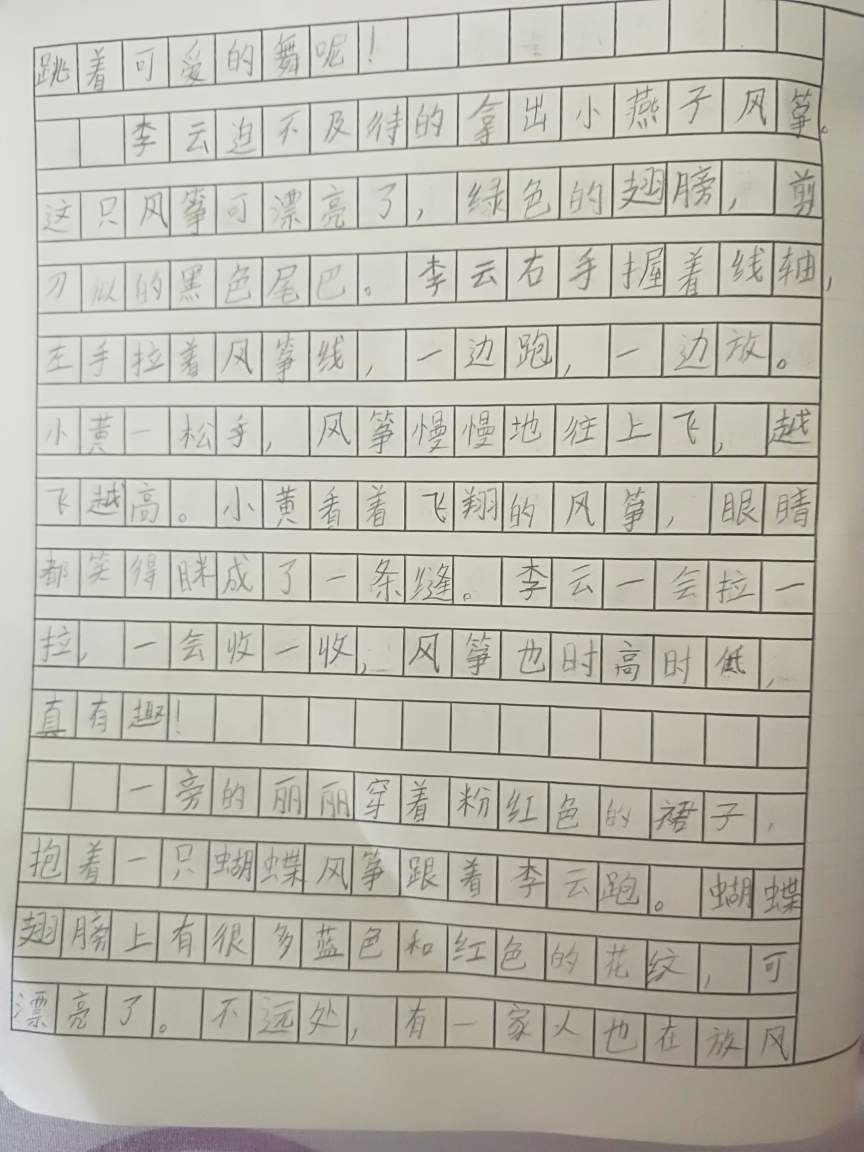 跳着可爱的舞呢！
李云迫不及待的拿出小燕子风筝。
这只风筝可漂亮了，绿色的翅膀，剪
刀似的黑色尾巴。李云右手握着线轴，
左手拉着风筝线，一边跑，一边放。
小黄一松手，风筝慢慢地往上飞，越
飞越高。小黄看着飞翔的风筝，眼睛
都笑得眯成了一条缝。李云一会拉一
拉，一会收一收，风筝也时高时低，
真有趣！
一旁的丽丽穿着粉红色的裙子，
抱着一只蝴蝶风筝跟着李云跑。蝴蝶
翅膀上有很多蓝色和红色的花纹，可
漂亮了。不远处，有一家人也在放风